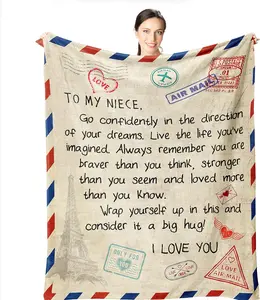 LOVE
AIR MAIL
01
TO MY NIECE,
Go confidently in the direction
of your dreams. Live the life you've
imagined. Always remember you are
braver than you think, stronger
than you seem and loved more
than you Know.
Wrap yourself up in this and
consider it a big hug!
I LOVE YOU
ONLY FOR
LOVE
AIR MAIL